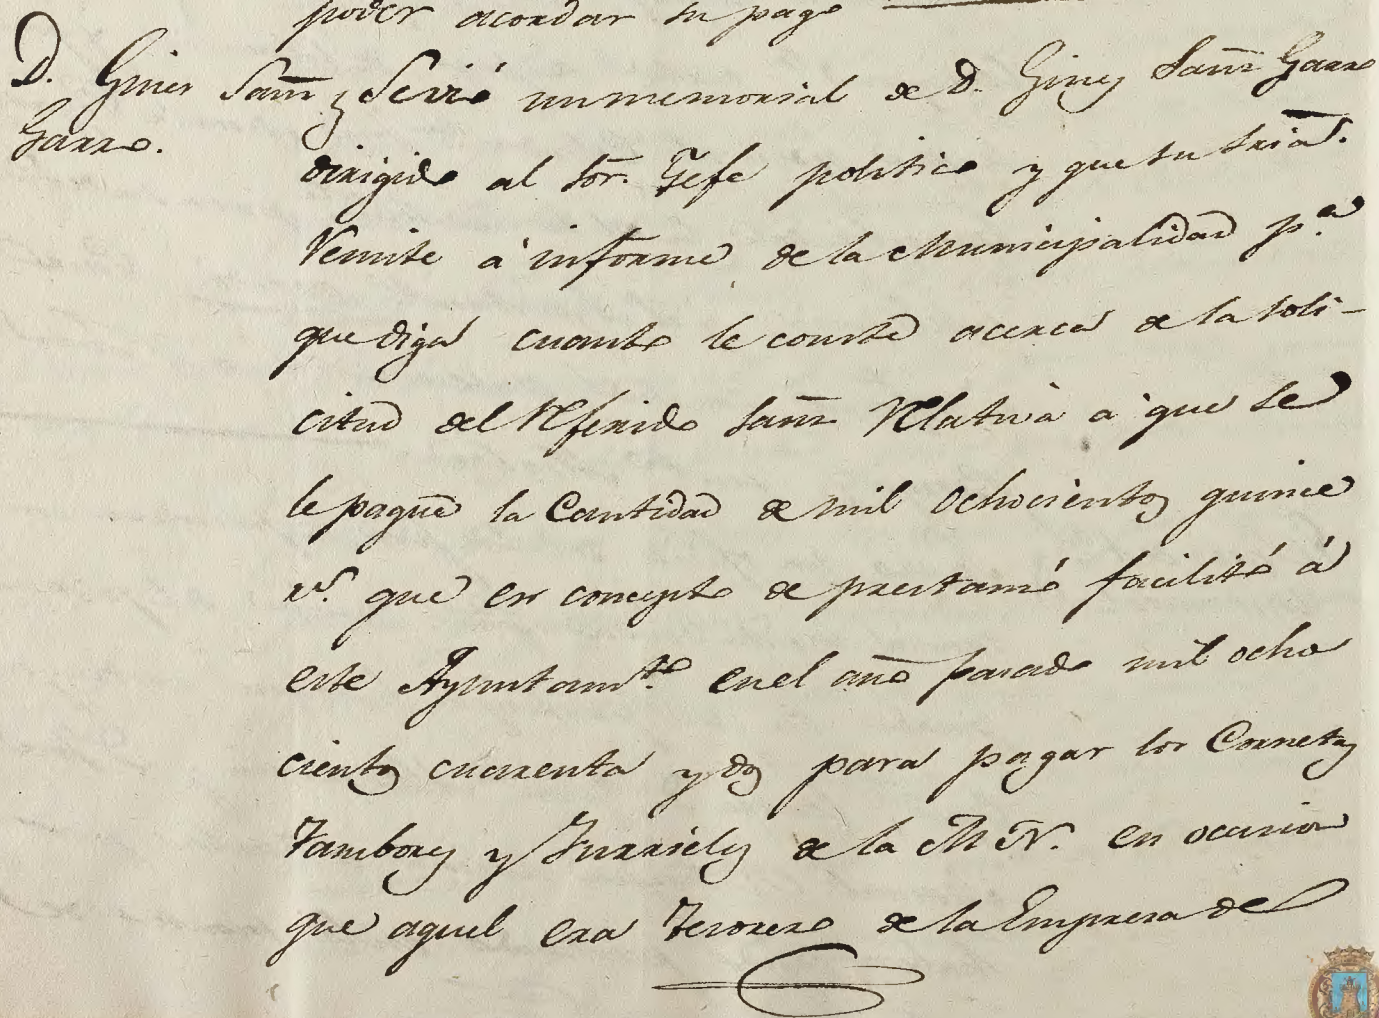 poder acordar su pago
D. Gines Sanz y
Garre.
Se vió un memorial de D. Gines Sanz Garre
dirigido al Sor. Gefe politico y que su Sria.
remite á informe de la Municipalidad p.a
que diga cuanto le conste acerca de la soli-
citud del referido Sanz relativa á que se
le pague la Cantidad de mil Ochocientos quince
rs. que en concepto de prestamo facilitó á
este Ayuntamto. en el año pasado mil ocho
cientos cuarenta y dos para pagar los Cornetas
Tambores y Furrieles de la M. N. en ocasion
que aquel era Tesorero de la Empresa de